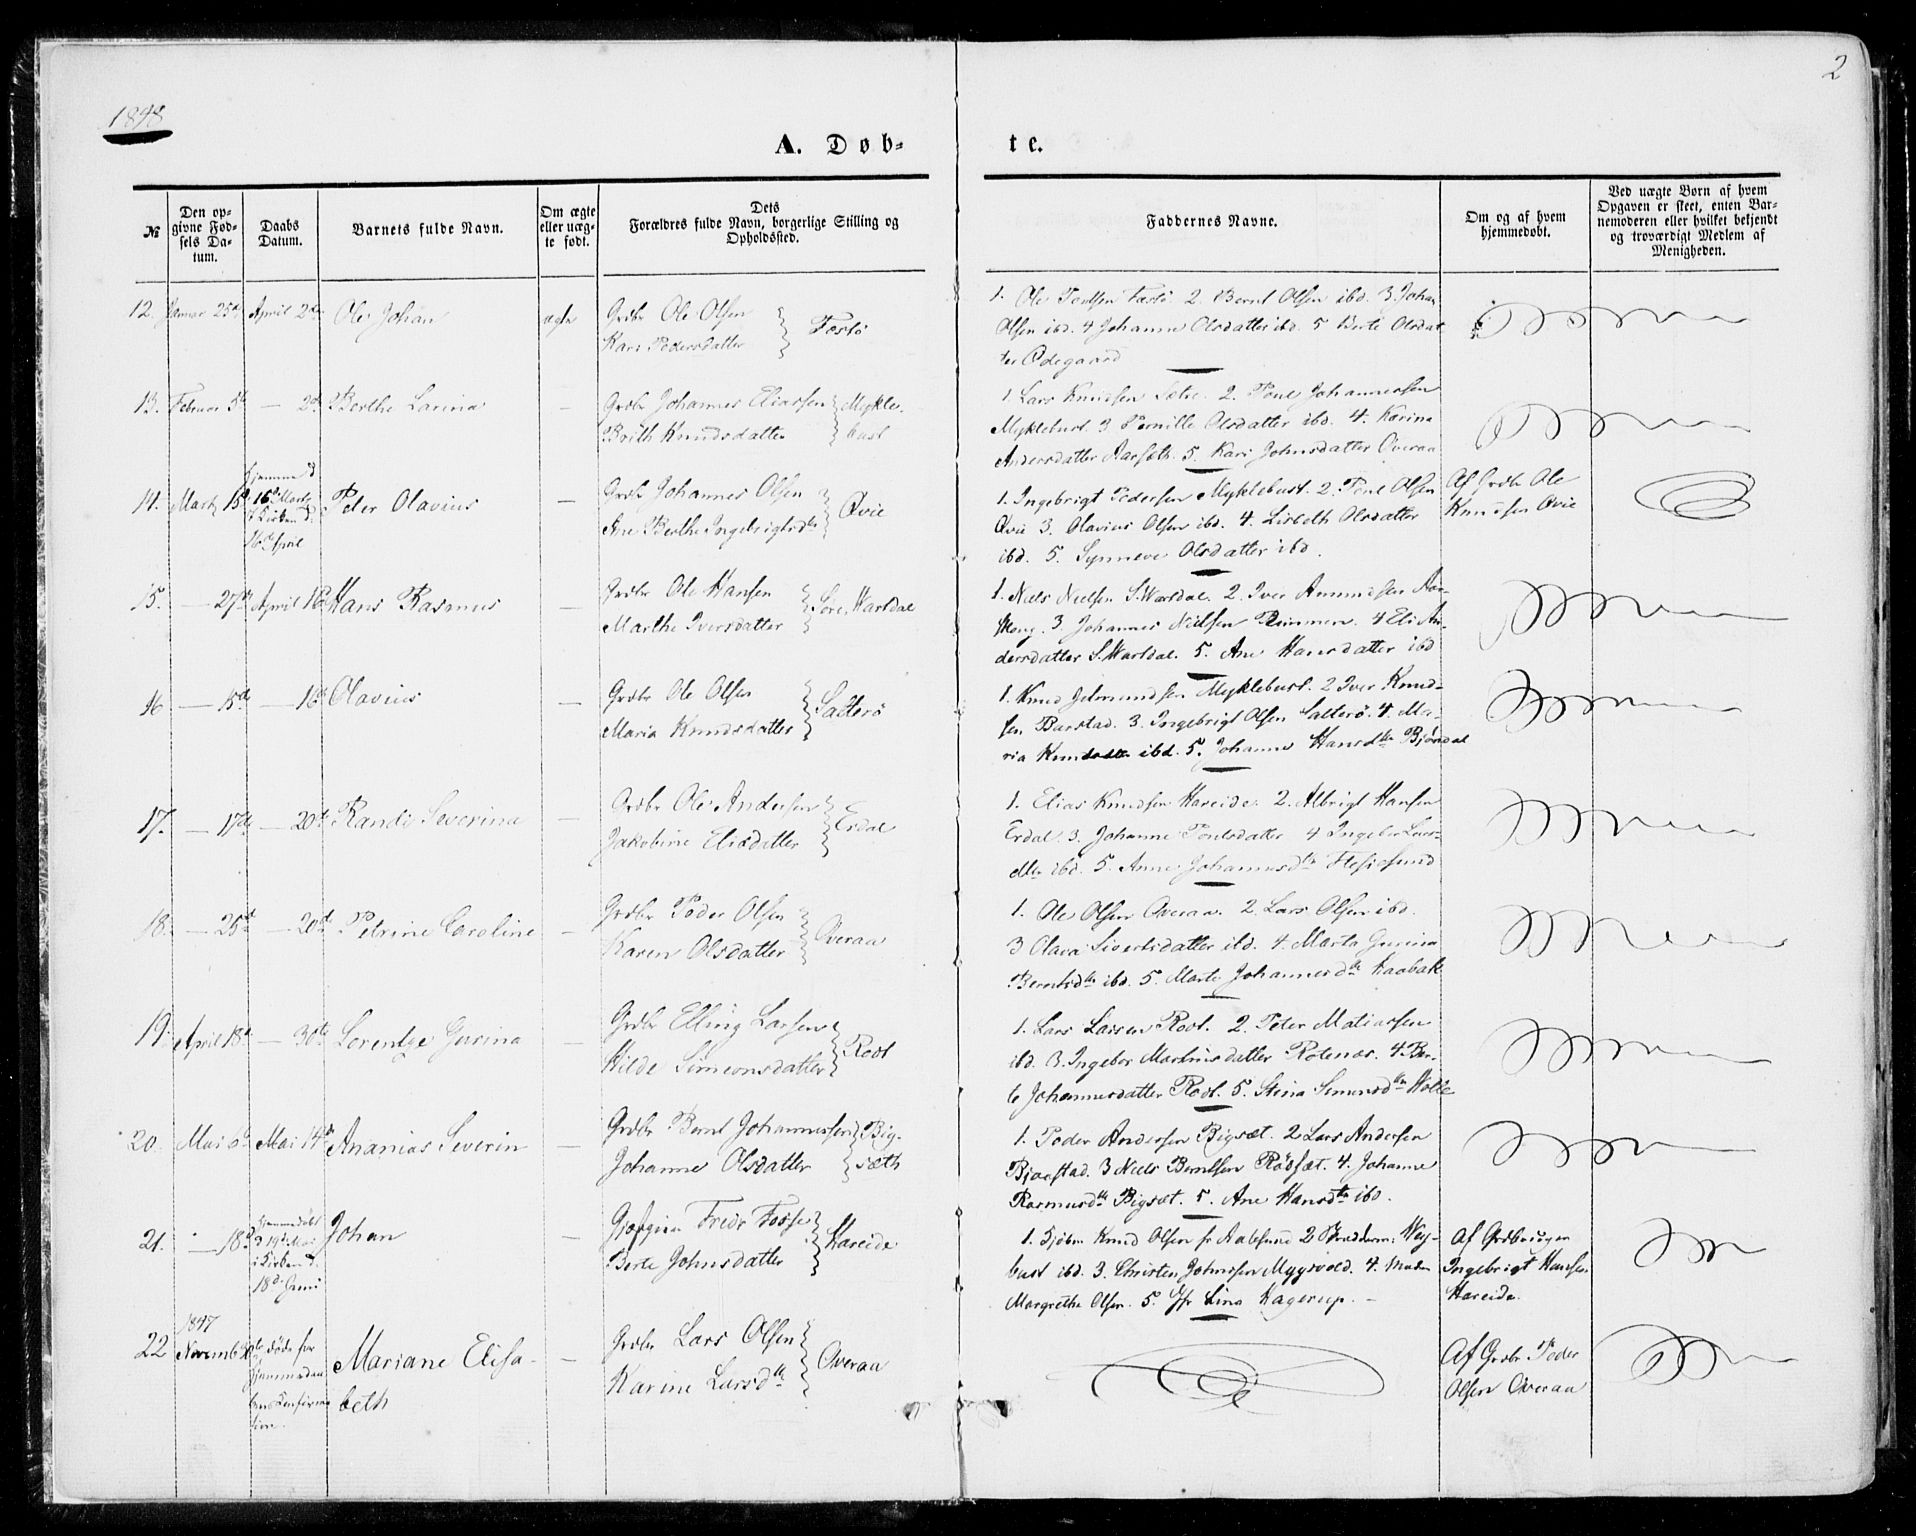 2
1848
A. Døb-
te.
№
Den op-
givne Fød-
sels Da-
tum.
Daabs
Datum.
Barnets fulde Navn.
Om ægte
eller uæg-
te født.
Dets
Forældres fulde Navn, borgerlige Stilling og
Opholdssted.
Faddernes Navne.
Om og af hvem
hjemmedøbt.
Ved uægte Børn af hvem
Opgaven er skeet, enten Bar-
nemoderen eller hvilket bekjendt
og troværdigt Medlem af
Menigheden.
12. Januar 25de April 2den Ole Johan ægte
Grdbr Ole Olsen
Kari Pedersdatter
1. Ole 2. Bernt Olsen ibd. 3. Johan
Olsen ibd. 4 Johanne Olsdatter ibd. 5 Berte Olsdat
ter Ødegaard
13. Februar 5te — 2den Berthe Larina —
Grdbr Johannes Eliassen
Brith Knudsdatter
Mykle-
bust
1. Lars Knudsen Sætre. 2. Poul Johannessen
Myklebust 3 Pernille Olsdatter ibd. 4. Karine
Andersdatter Aarsæth. 5. Kari Johnsdatter Overaa
14. Marts 15de
Hjemme d.
16de Marts
i Kirken d.
16de April
Peter Olavius —
Grdbr Johannes Olsen
Ane Berthe Ingebrigtsdtr
Qvie
1. Ingebrigt Pedersen Myklebust. 2. Poul Olsen
Qvie 3. Olavius Olsen ibd. 4. Lisbeth Olsdatter
ibd. 5. Synneve Olsdatter ibd.
Af Grdbr Ole
Knudsen Qvie
15. — 27de April 16de Hans Rasmus —
Grdbr Ole Hansen
Marthe Iversdatter
Søre Wartdal
1. Niels Nielsen S. Wartdal. 2. Iver Amundsen Aar-
3. Johannes Nielsen 4 Eli An-
dersdatter S. Wartdal. 5. Ane Hansdatter ibd
16 — 15de — 16de Olavius —
Grdbr Ole Olsen
Maria Knudsdatter
Salterø
1. Knud Myklebust. 2 Iver Knud-
sen Barstad. 3. Ingebrigt Olsen Salterø. 4. Ma-
ria ibd. 5. Johanne Hansdtr Bjørdal
17. — 17de — 20de Randi Severina —
Grdbr Ole Andersen
Jakobine Elisdatter
Erdal
1. Elias Knudsen Hareide. 2. Albrigt Hansen
Erdal 3. Johanne Poulsdatter 4 Ingebor Lars-
dtr ibd. 5. Anne Johannesdtr
18. — 25de — 20de Petrine Caroline —
Grdbr Peder Olsen
Karen Olsdatter
Overaa
1. Ole Olsen Overaa. 2. Lars Olsen ibd.
3 Olava Sivertsdatter ibd. 4. Marta Gurina
Berntsdtr ibd. 5. Marte Johannesdtr
19. April 18de — 30te Lorentze Gurina —
Grdbr Elling Larsen
Hilde Simeonsdatter
1. Lars Larsen 2. Peter Matiassen
ibd. 3. Ingebor Martinusdatter 4. Ber-
te Johannesdatter 5. Stina
20. Mai 6te Mai 14de Ananias Severin —
Grdbr Bernt Johannessen
Johanne Olsdatter
Big-
sæth
1. Peder Andersen Bigsæt. 2 Lars Andersen
3 Niels Berntsen Rødsæt. 4. Johanne
Rasmusdtr Bigsæt. 5. Ane Hansdtr ibd.
21. — 18de
hjemmedøbt
d 19de Mai
i Kirken d.
18de Juni
Johan —
Fredr Fosse
Berte Johnsdatter
Hareide
1. Knud Olsen fr Aalesund 2
bust ibd. 3. Christen Johnsen 4. Madm
Margrethe Olsen. 5. Jfr Lina Hagerup. —
Af Grdbruger
Ingebrigt Hansen
Hareide.
1847
22 Novemb
Døde før
Hjemmedaa-
bens Confirma-
tion.
Mariane Elisa-
beth —
Grdbr Lars Olsen
Karine Larsdtr
Overaa
Af Grdbr Peder
Olsen Overaa